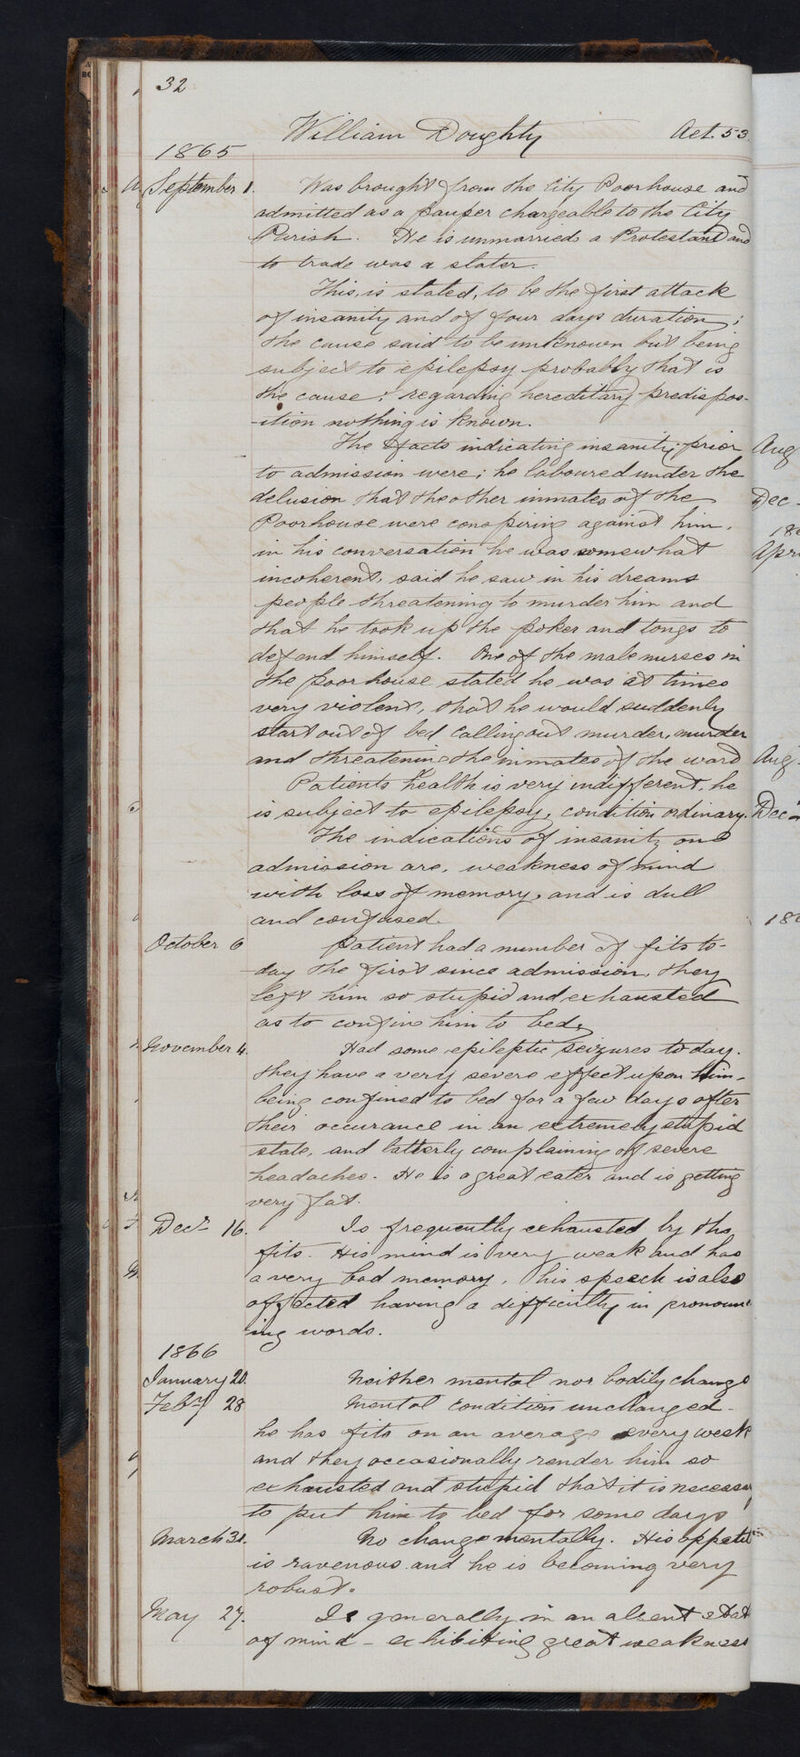 32
William Doughty Aet. 53.
1865
September 1. Was brought from the City Poorhouse and
admitted as a pauper chargeable to the City
Parish. He is unmarried a Protestant and
to trade was a slater.
This, is stated, to be the first attack
of insanity and of four days duration;
the cause said to be unknown but being
subject to epilepsy probably that is
the cause; regarding hereditary predispos-
-ition nothing is known.
The facts indicating insanity prior
to admission were; he laboured under the
delusion that the other inmates of the
Poorhouse were conspiring against him.
in his conversation he was somewhat
incoherent, said he saw in his dreams
people threatening to murder him and
that he took up the poker and tongs to
defend himself. One of the male nurses in
the poorhouse stated he was at times
very violent, that he would suddenly
start out of bed calling out murder, murder
and threatening the inmates of the ward
Patients health is very indifferent, he
is subject to epilepsy, condition ordinary.
The indications of insanity on
admission are, weakness of mind
with loss of memory, and is dull
and confused.
October 6 Patient had a number of fits to-
day the first since admission, they
left him so stupid and exhausted
as to confine him to bed.
November 4. Had some epileptic seizures today.
they have a very severe effect upon him-
being confined to bed for a few days after
their occurance in an extremely stupid
state, and latterly complaining of severe
headaches. He is a great eater and is getting
very fat.
Decr 16. Is frequently exhausted by the
fits. His mind is very weak and has
a very bad memory, his speech is also
affected having a difficulty in pronounc
ing words.
1866
January 20. Neither mental nor bodily change
Feby 28 Mental condition unchanged-
he has fits on an average every week
and they occasionally render him so
exhausted and stupid that it is necessary
to put him to bed for some days
March 31. No change mentally. His appetite
is ravenous and he is becoming very
robust.
May 27. Is generally in an absent stat
of mind - exhibiting great weakness
Aug
Dec
186
Apri
Aug
Dec
186